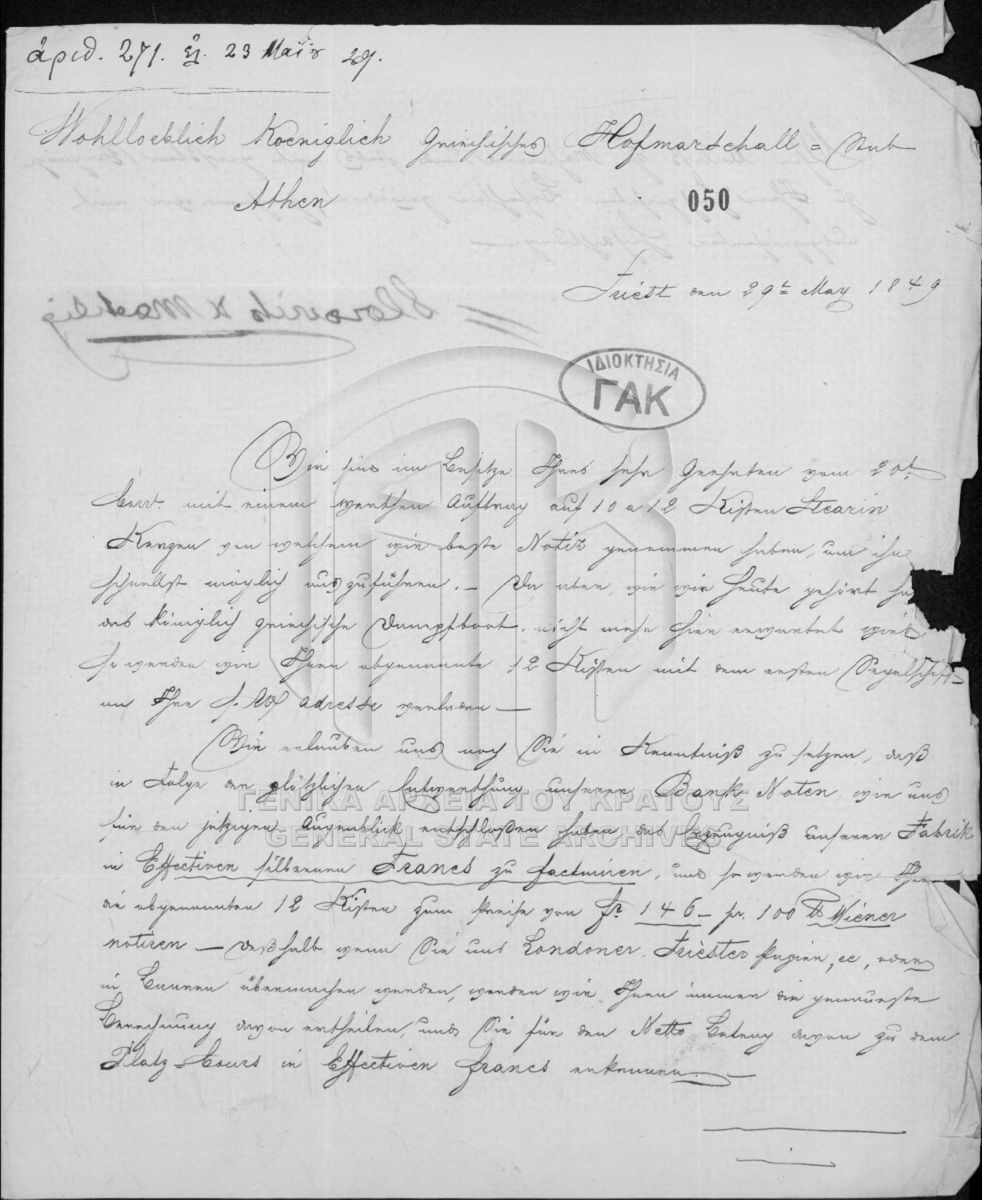 ἀριθ. 271. ἐλ. 23 Μαΐου 49.
Wohlloeblich Koeniglich Griechisches Hofmarschall = Stab
Athen
050
Triest den 29t May 1849
ΙΔΙΟΚΤΗΣΙΑ
ΓΑΚ
Wir sind im Besitze Ihres sehr Geehrten vom 20t
Corr. mit einem werthen Auftrag auf 10 a 12 Kisten Stearin
Kerzen von welchem wir beste Notiz genommen haben, um ihn
schnellst möglich auszuführen. – Da aber, wie wir heute gehört ha
das königlich griechische Dampfboot, nicht mehr hier erwartet wird
so werden wir Ihnen obgenannte 12 Kisten mit dem ersten Segelschiff
an Ihre adresse verladen —
Wir erlauben uns noch Sie in Kenntniß zu setzen, daß
in Folge der plötzlichen Entwerthung unserer Bank Noten, wir uns
für den jetzigen Augenblick entschloßen haben, das Erzeugniß unserer Fabrik
in Effectiven silbernen Francs zu facturiren, und so werden wir Ihnen
die obgenannten 12 Kisten zum Preise von fr 146 – pr. 100 ℔ Wiener
notiren — deßhalb wenn Sie uns Londoner, Triester Papier, cc, oder
in Baaren übermachen werden, werden wir Ihnen immer die genaueste
Berechnung davon ertheilen, und Sie für den Netto Betrag davon zu dem
Platz=Cours in Effectiven francs erkennen. —
ΓΕΝΙΚΑ ΑΡΧΕΙΑ ΤΟΥ ΚΡΑΤΟΥΣ
GENERAL STATE ARCHIVES